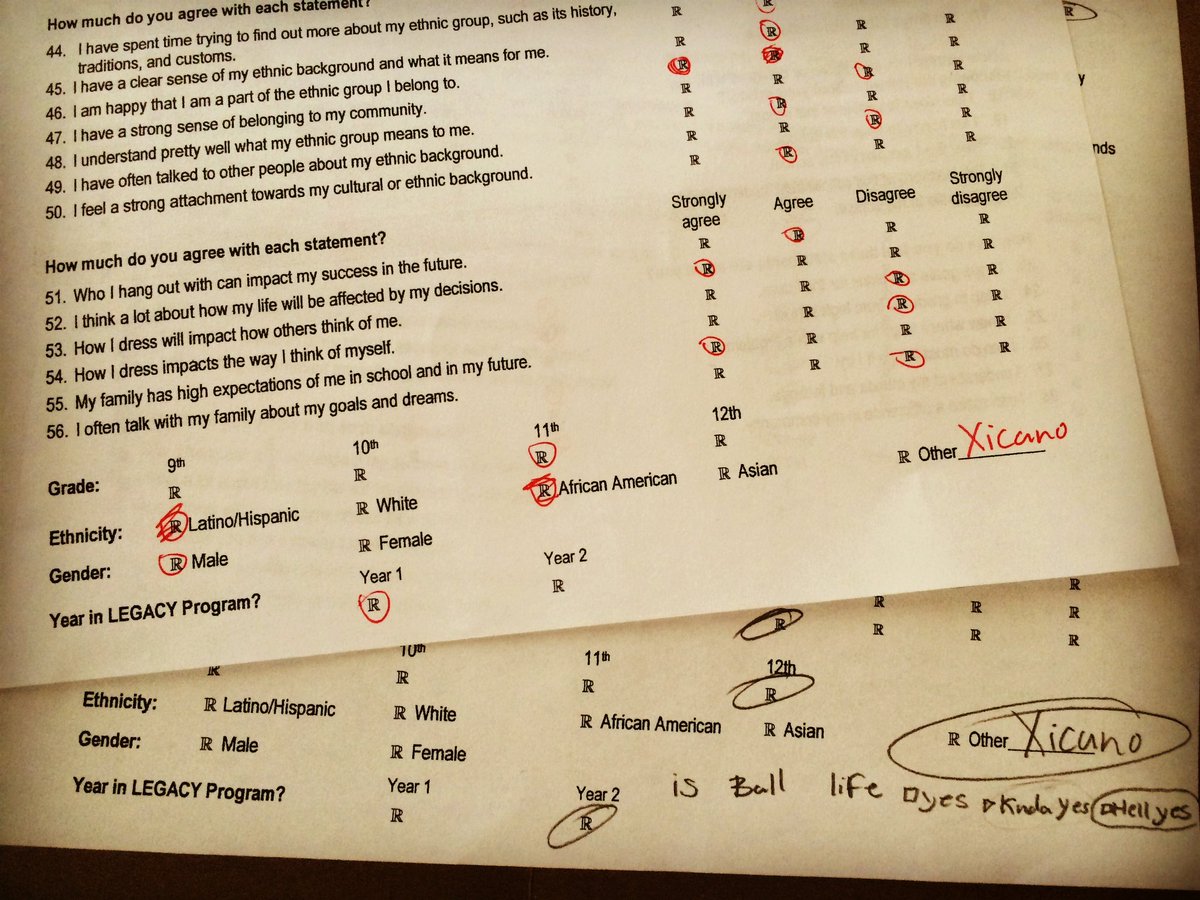 How much do you agree with each statement?
44. I have spent time trying to find out more about my ethnic group, such as its history, traditions, and customs. R R R R
45. I have a clear sense of my ethnic background and what it means for me. R R R R
46. I am happy that I am a part of the ethnic group I belong to. R R R R
47. I have a strong sense of belonging to my community. R R R R
48. I understand pretty well what my ethnic group means to me. R R R R
49. I have often talked to other people about my ethnic background. R R R R
50. I feel a strong attachment towards my cultural or ethnic background. R R R R
How much do you agree with each statement? Strongly agree Agree Disagree Strongly disagree
51. Who I hang out with can impact my success in the future. R R R R
52. I think a lot about how my life will be affected by my decisions. R R R R
53. How I dress will impact how others think of me. R R R R
54. How I dress impacts the way I think of myself. R R R R
55. My family has high expectations of me in school and in my future. R R R R
56. I often talk with my family about my goals and dreams. R R R R
9th 10th 11th 12th
Grade: R R R R
Ethnicity: R Latino/Hispanic R White R African American R Asian R Other Xicano
Gender: R Male R Female
Year 1 Year 2
Year in LEGACY Program? R R
R
y
nds
R R R R
R R R
10th 11th 12th
R R R R
Ethnicity: R Latino/Hispanic R White R African American R Asian R Other Xicano
Gender: R Male R Female
Year in LEGACY Program? Year 1 Year 2
R R
is Ball life yes Kinda yes Hell yes